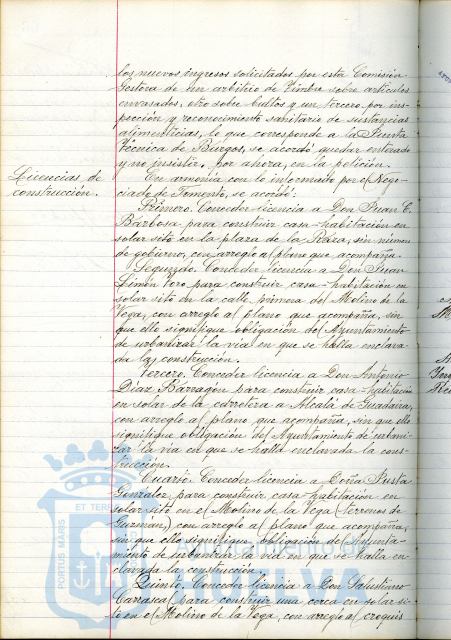 los nuevos ingresos solicitados por esta Comisión
Gestora de un arbitrio de timbre sobre artículos
envasados, otro sobre bultos y un tercero por ins-
pección y reconocimiento sanitario de sustancias
alimenticias, lo que corresponde a la Junta
Técnica de Burgos, se acordó quedar enterado
y no insistir, por ahora, en la petición.
Licencias de
construcción.
En armonía con lo informado por el Nego-
ciado de Fomento, se acordó:
Primero. Conceder licencia a Don Juan C.
Barbosa para construir casa-habitación en
solar sito en la plaza de la sin número
de gobierno, con arreglo al plano que acompaña.
Segundo. Conceder licencia a Don Juan
Limón Toro para construir casa-habitación en
solar sito en la calle primera del Molino de la
Vega, con arreglo al plano que acompaña, sin
que ello signifique obligación del Ayuntamiento
de urbanizar la vía en que se halla enclava-
da la construcción.
Tercero. Conceder licencia a Don Antonio
Díaz Barragón para construir casa-habitación
en solar de la carretera a Alcalá de Guadaira,
con arreglo al plano que acompaña, sin que ello
signifique obligación del Ayuntamiento de urbani-
zar la vía en que se halla enclavada la cons-
trucción.
Cuarto. Conceder licencia a Doña Justa
González para construir casa-habitación en
solar sito en el Molino de la Vega (terrenos de
Guzmán,) con arreglo al plano que acompaña,
sin que ello signifique obligación del Ayunta-
miento de urbanizar la vía en que se halla en-
clavada la construcción.
Quinto. Conceder licencia a Don Salustiano
Carrascal para construir una cerca en solar si-
to en el Molino de la Vega, con arreglo al croquis
PORTUS MARIS
ET TERR
HUELVA